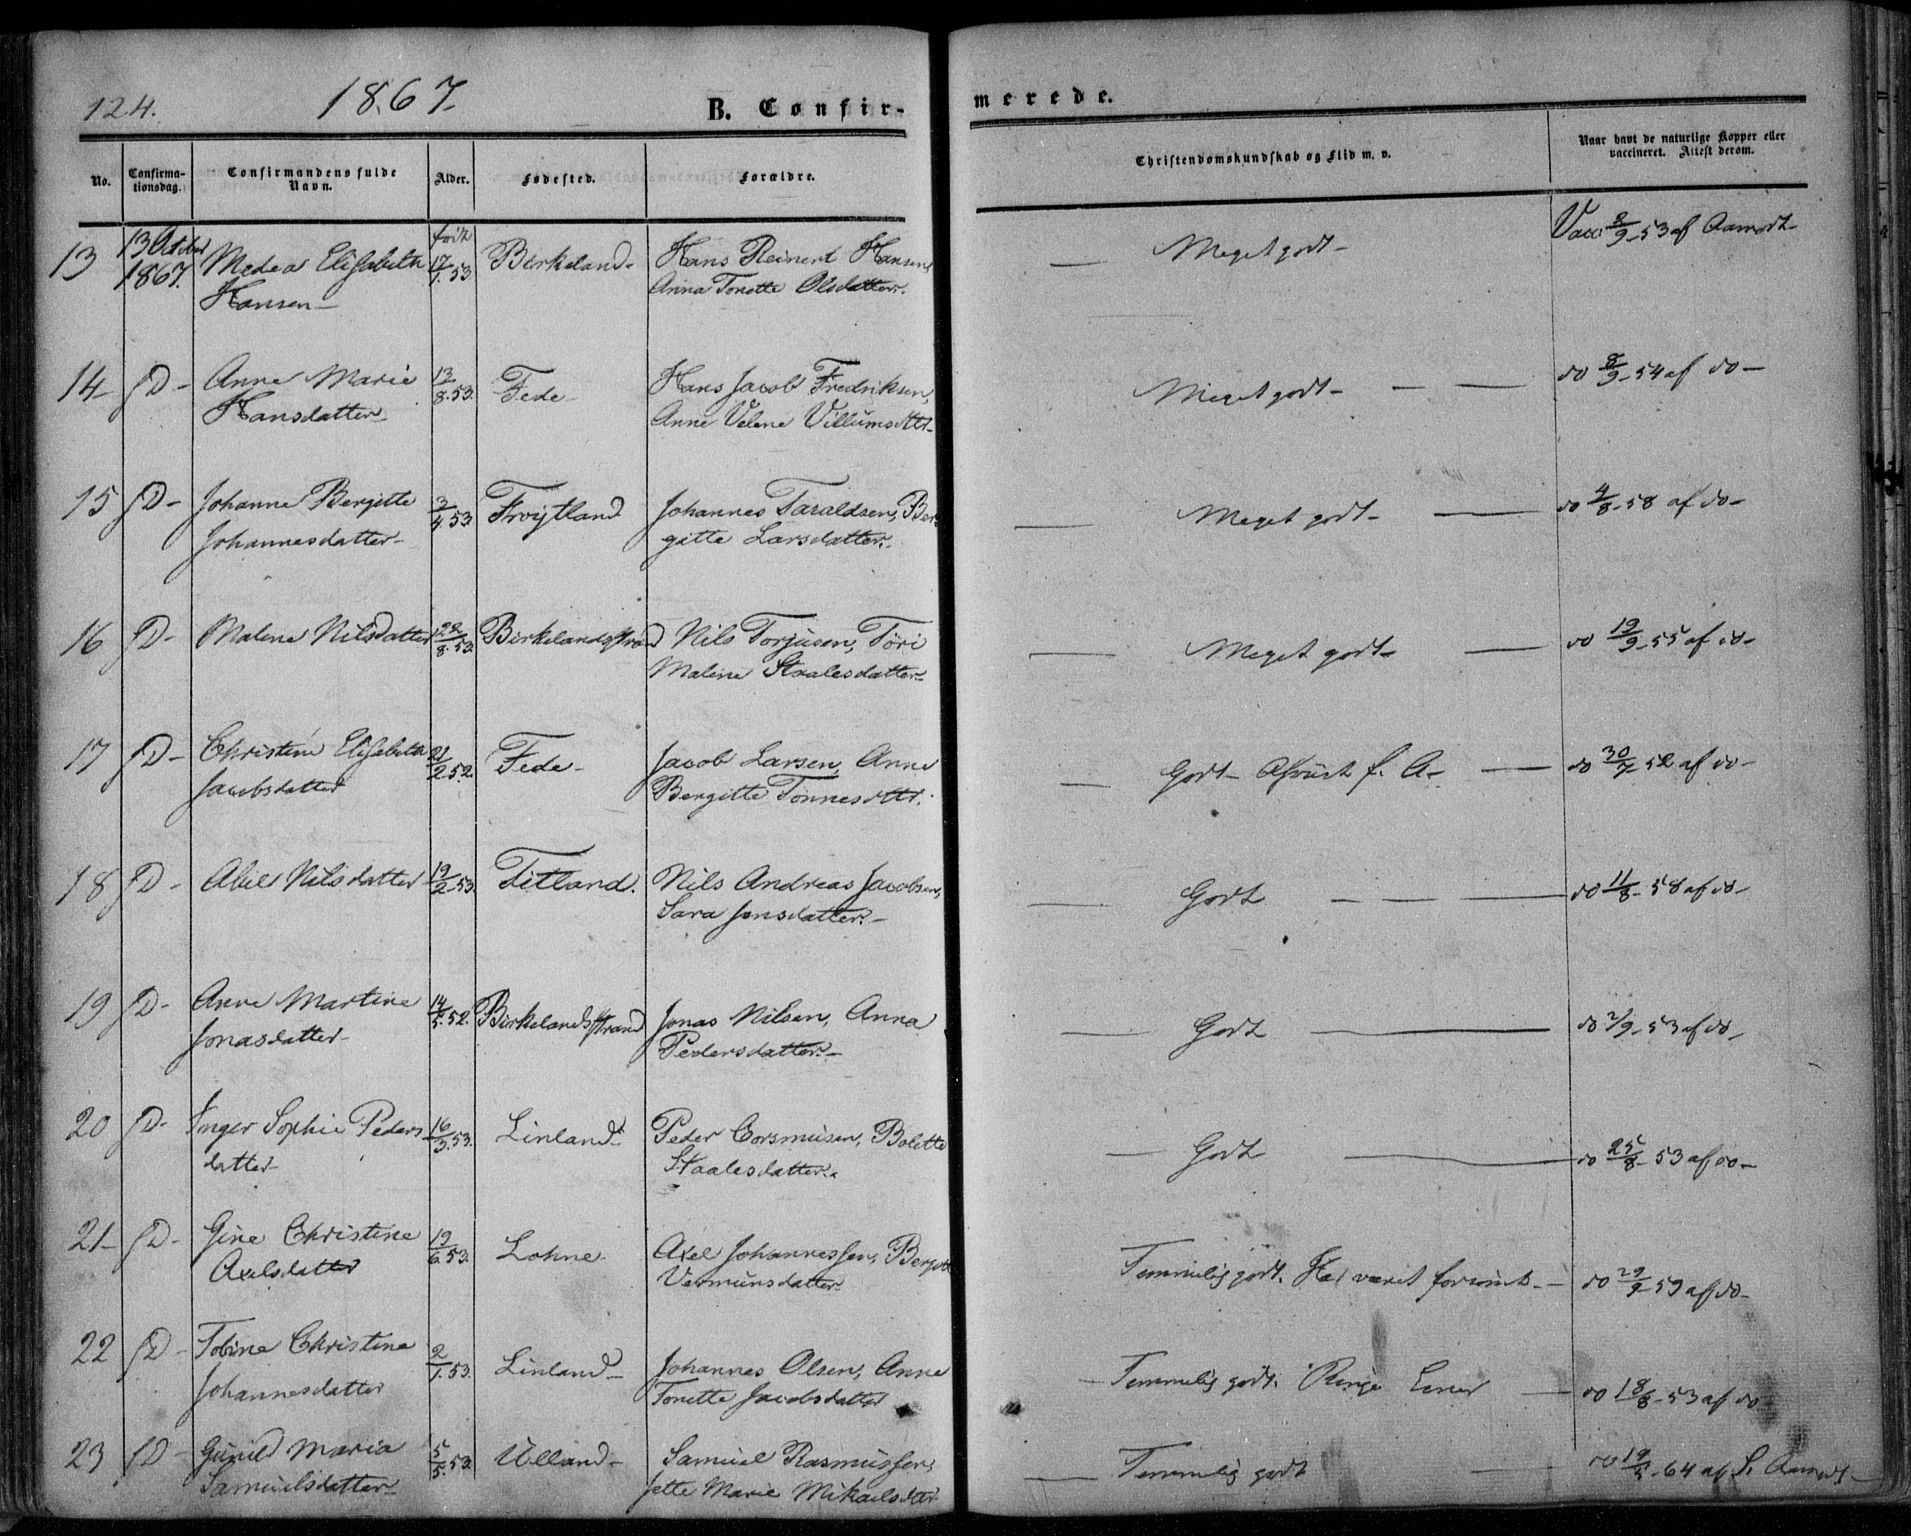 124.
1867.
B. Confir-
merede.
No.
Confirma-
tionsdag.
Confirmandens fulde
Navn.
Alder.
Fødested.
Forældre.
Christendomskundskab og Flid m. v.
Naar havt de naturlige Kopper eller
vaccineret. Attest derom.
13 13 October 1867. Medea Elisabeth Hansen- født 17/1.53. Birkeland- Hans Reinert Hansen, Anna Tonette Olsdatter- Meget godt- Vacc 8/9-53 af Aamodt-
14- D- Anne Marie Hansdatter- 13/8.53. Fede- Hans Jacob Fredriksen, Anne Velene Villumsdttr- Meget godt- do 8/9-54 af do-
15 D- Johanne Bergitte Johannesdatter- 3/4.53 Frøytland Johannes Taraldsen, Bergitte Larsdatter- Meget godt- do 4/8-58 af do-
16 D- Malene Nilsdatter 28/8.53. Birkelandsstrand Nils Torjusen, Tøri Maline Staalesdatter- Meget godt- do 19/9-55 af do-
17 D- Christine Elisabeth Jacobsdatter 21/2.52. Fede- Jacob Larsen, Anne Bergitte Tønnesdttr. Godt- do 30/7-52 af do-
18 D- Abel Nilsdatter 19/2.53. Titland. Nils Andreas Jacobsen, Sara Jensdatter- Godt do 11/8-58 af do-
19 D- Anne Martine Jonasdatter- 14/5.52. Birkelandsstrand Jonas Nilsen, Anna Pedersdatter- Godt do 2/9-53 af do-
20 D- Inger Sophie Pedersdatter- 16/3.53. Linland- Peder Corsmusen, Bolette Staalesdatter- Godt do 25/8-53 af do-
21- D- Gine Christine Axelsdatter 19/6.53. Lohne- Axel Johannessen, Bergitte Vermunsdatter- Temmelig godt. Har været forsømt- do 29/9-59 af do-
22 D- Tobine Christine Johannesdatter 2/1.53. Linland- Johannes Olsen, Anne Tonette Jacobsdatter Temmelig godt. Ringe Evner do 18/8-53 af do
23 D- Gunild Maria Samuelsdatter- 5/5.53. Ulland- Samuel Rasmussen, Jette Marie Mikaelsdttr Temmelig godt do 19/5-64 af S. Aamodt-